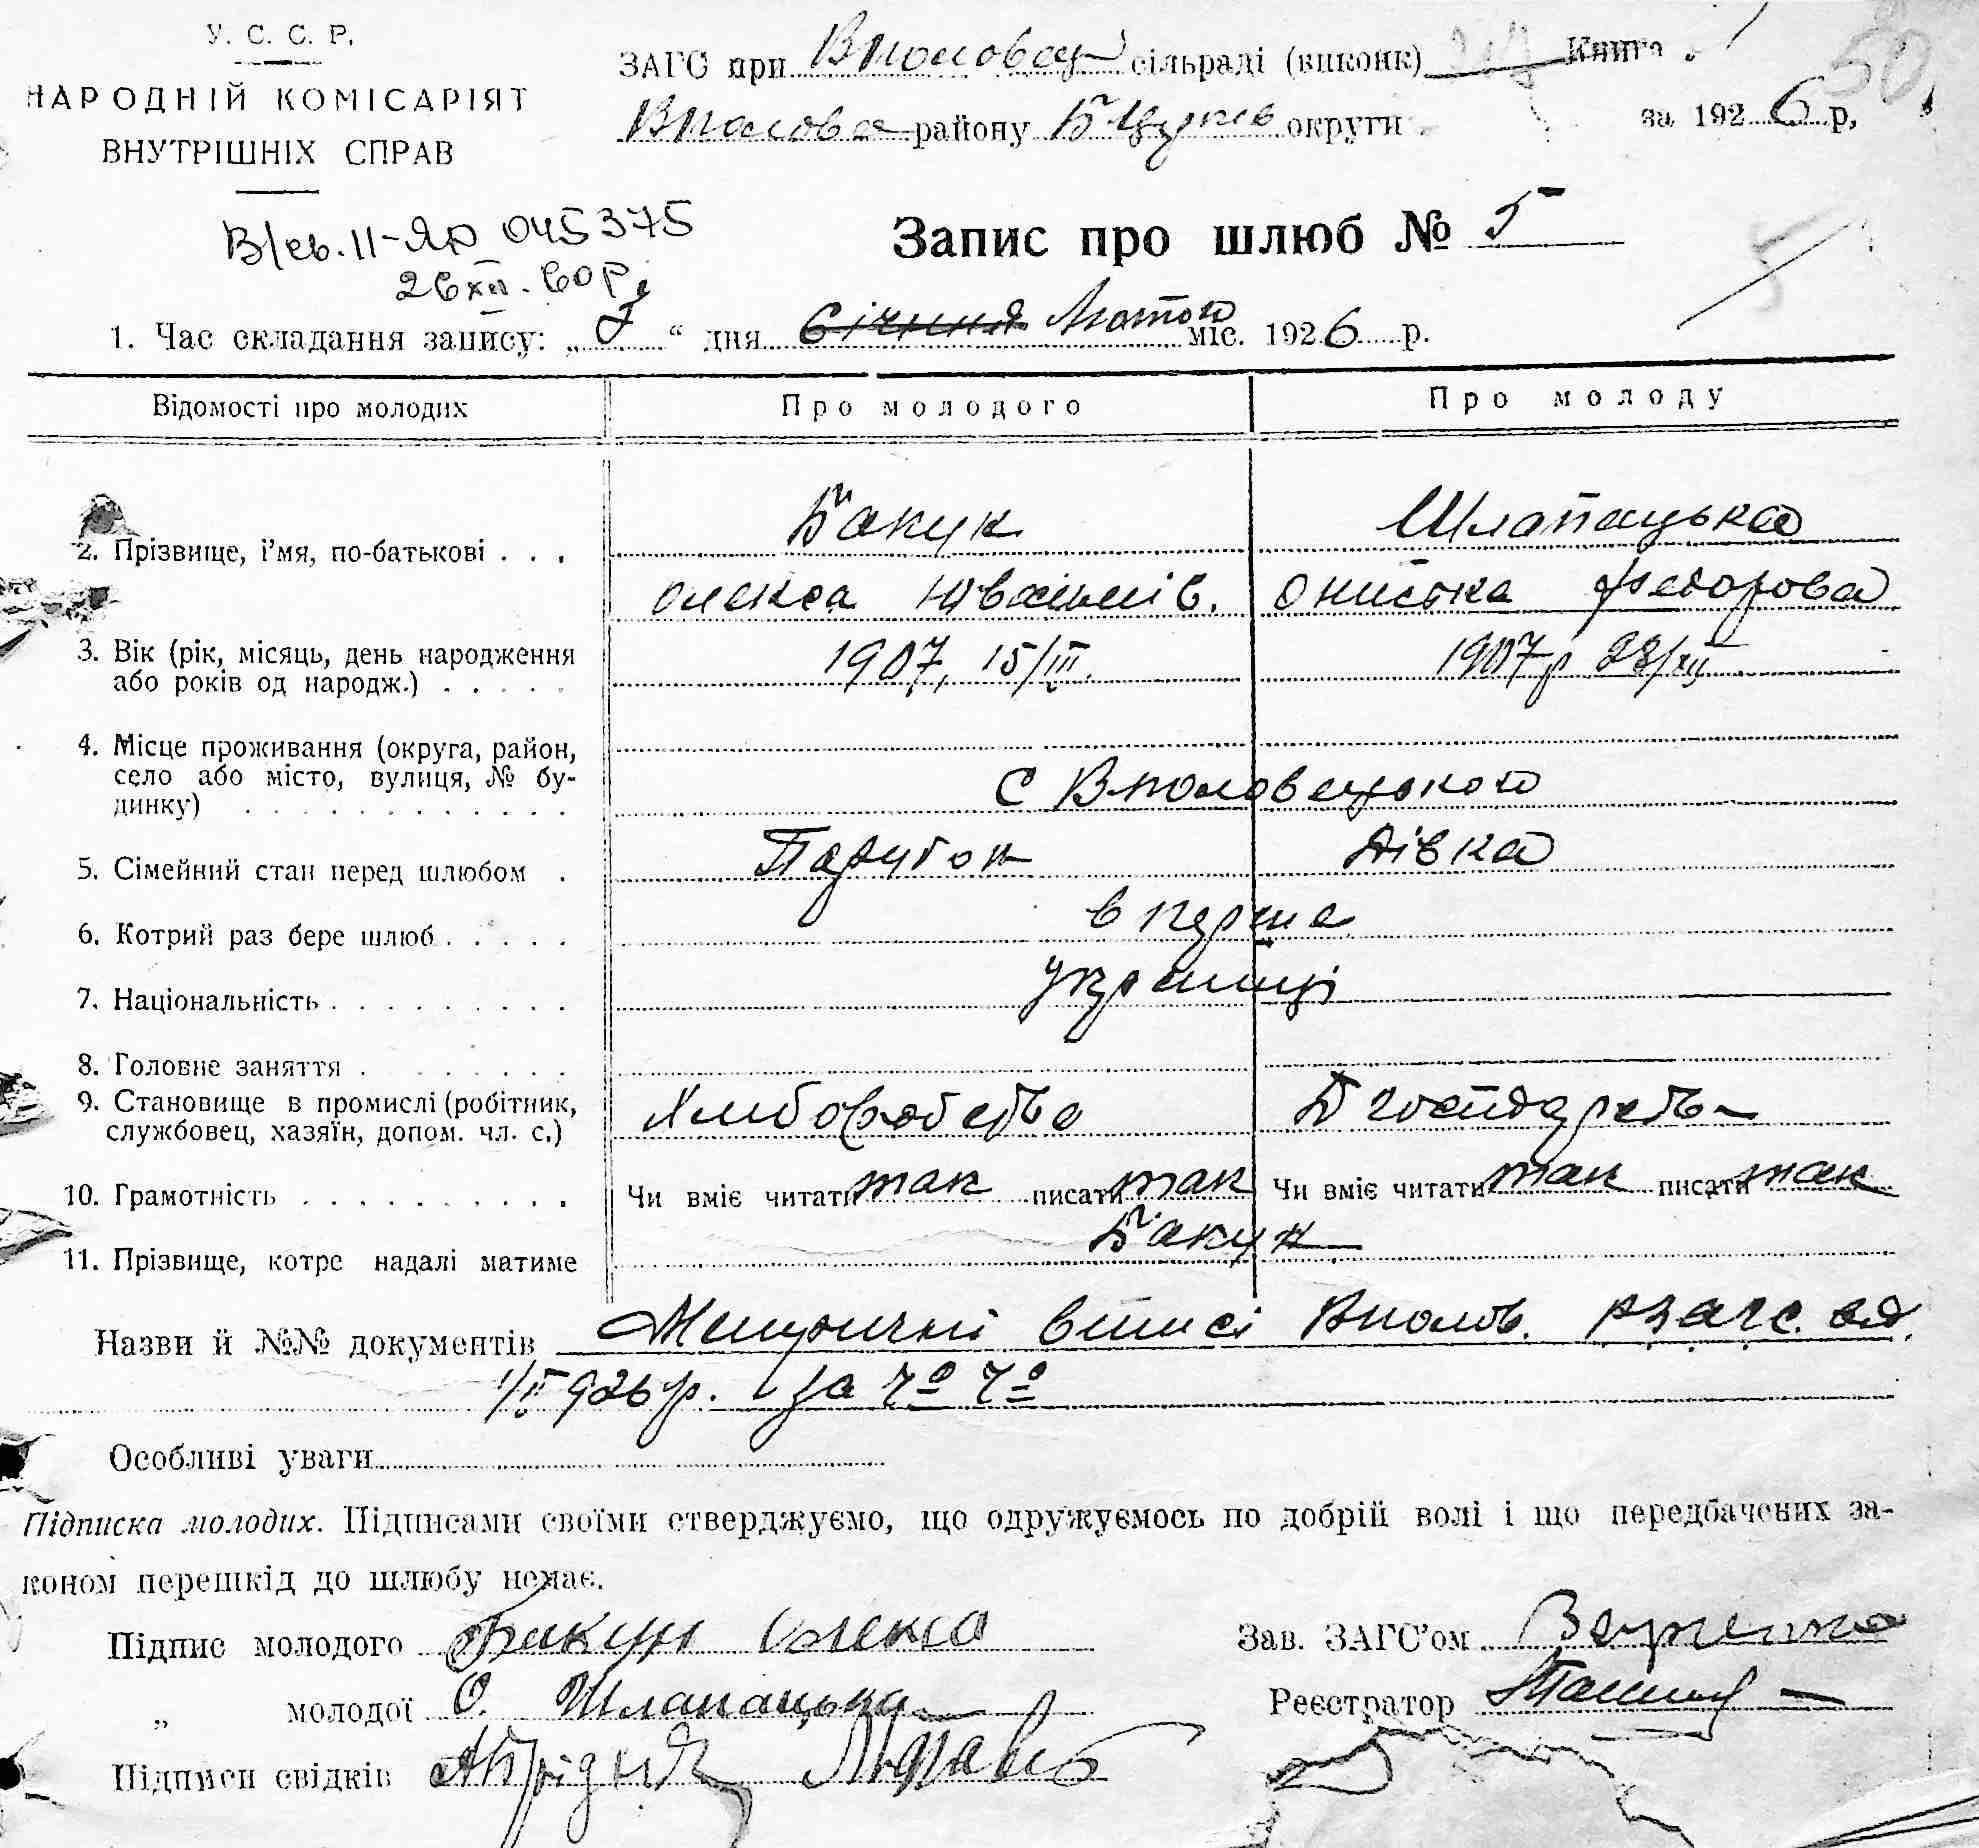 У. С. С. Р.
НАРОДНІЙ КОМІСАРІЯТ
ВНУТРІШНІХ СПРАВ
ЗАГС при Вполовец сільраді (виконк) Книга
Вполовец району БЦерків округи за 1926 р,
50
В/св. II-ЯР 045375
26 XII. 60 р
Запис про шлюб № 5
1. Час складання запису: „ “ дня Січння Лютого міс. 1926 р.
Відомості про молодих Про молодого Про молоду
Бакун Шлапацька
2. Прізвище, і'мя, по-батькові . . .
Олекса Ониська Федорова
3. Вік (рік, місяць, день народження 1907, 15/III. 1907р 28/XII
або років од народж.) . . . . .
4. Місце проживання (округа, район,
село або місто, вулиця, № бу- С Вполовецького
динку) . . . . . . . . . . . .
5. Сімейний стан перед шлюбом . Парубок Дівка
6. Котрий раз бере шлюб . . . . . вперше
7. Національність . . . . . . . . . українці
8. Головне заняття . . . . . . . .
9. Становище в промислі (робітник, Хліборобство Д господарств
службовец, хазяїн, допом. чл. с.)
10. Грамотність . . . . . . . . . . Чи вміє читати так писати так Чи вміє читати так писати так
11. Прізвище, котре надалі матиме Бакун
Назви й №№ документів Метричні виписі Вполов. рзагс. од.
1/II 926 р. за
Особливі уваги
Підписка молодих. Підписами своїми стверджуємо, що одружуємось по добрій волі і що передбачених за-
коном перешкід до шлюбу немає.
Підпис молодого Бакун Олекса Зав. ЗАГС'ом
„ молодої О. Шлапацька Реєстратор
Підписи свідків